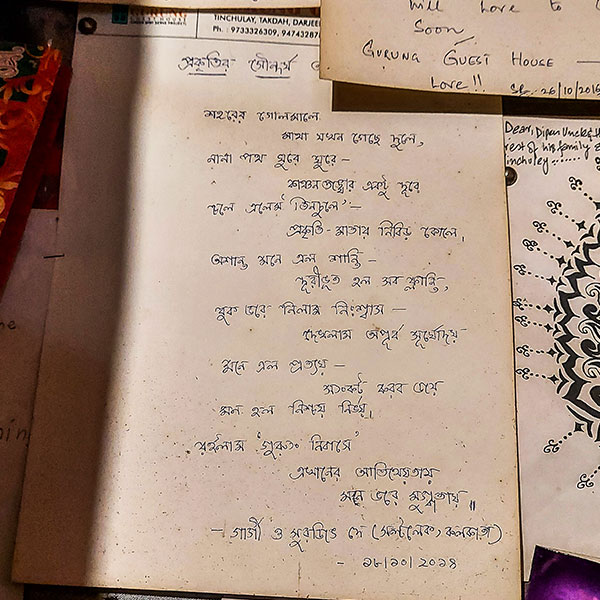 TINCHULAY, TAKDAH, DARJEE
Ph. : 9733326309, 9474328
will Love to
Soon
GURUNG GUEST HOUSE —
Love!!
26/10/2015
প্রকৃতির সৌন্দর্য
শহরের গোলমালে
মাথা যখন গেছে দুলে,
নানা পথ ঘুরে ঘুরে —
একটু দূরে
চলে এলেম 'তিনচুলে' —
প্রকৃতি-মাতার নিবিড় কোলে।
অশান্ত মনে এল শান্তি —
দূরীভূত হল সব ক্লান্তি,
বুক ভরে নিলাম নিঃশ্বাস —
দেখলাম অপূর্ব সূর্যোদয়
মনে এল প্রত্যয় —
সংকট করব জয়
মন হল নিশ্চয় নির্ভয়।
রইলাম 'গুরুং নিবাসে'
এখানের আতিথেয়তায়
মনে ভরে মুগ্ধতায়॥
— গার্গী ও সুরজিৎ দে (সল্টলেক, কলকাতা)
- ১৮/১০/২০১৪
Dear, Dipen Uncle & the
rest of his family